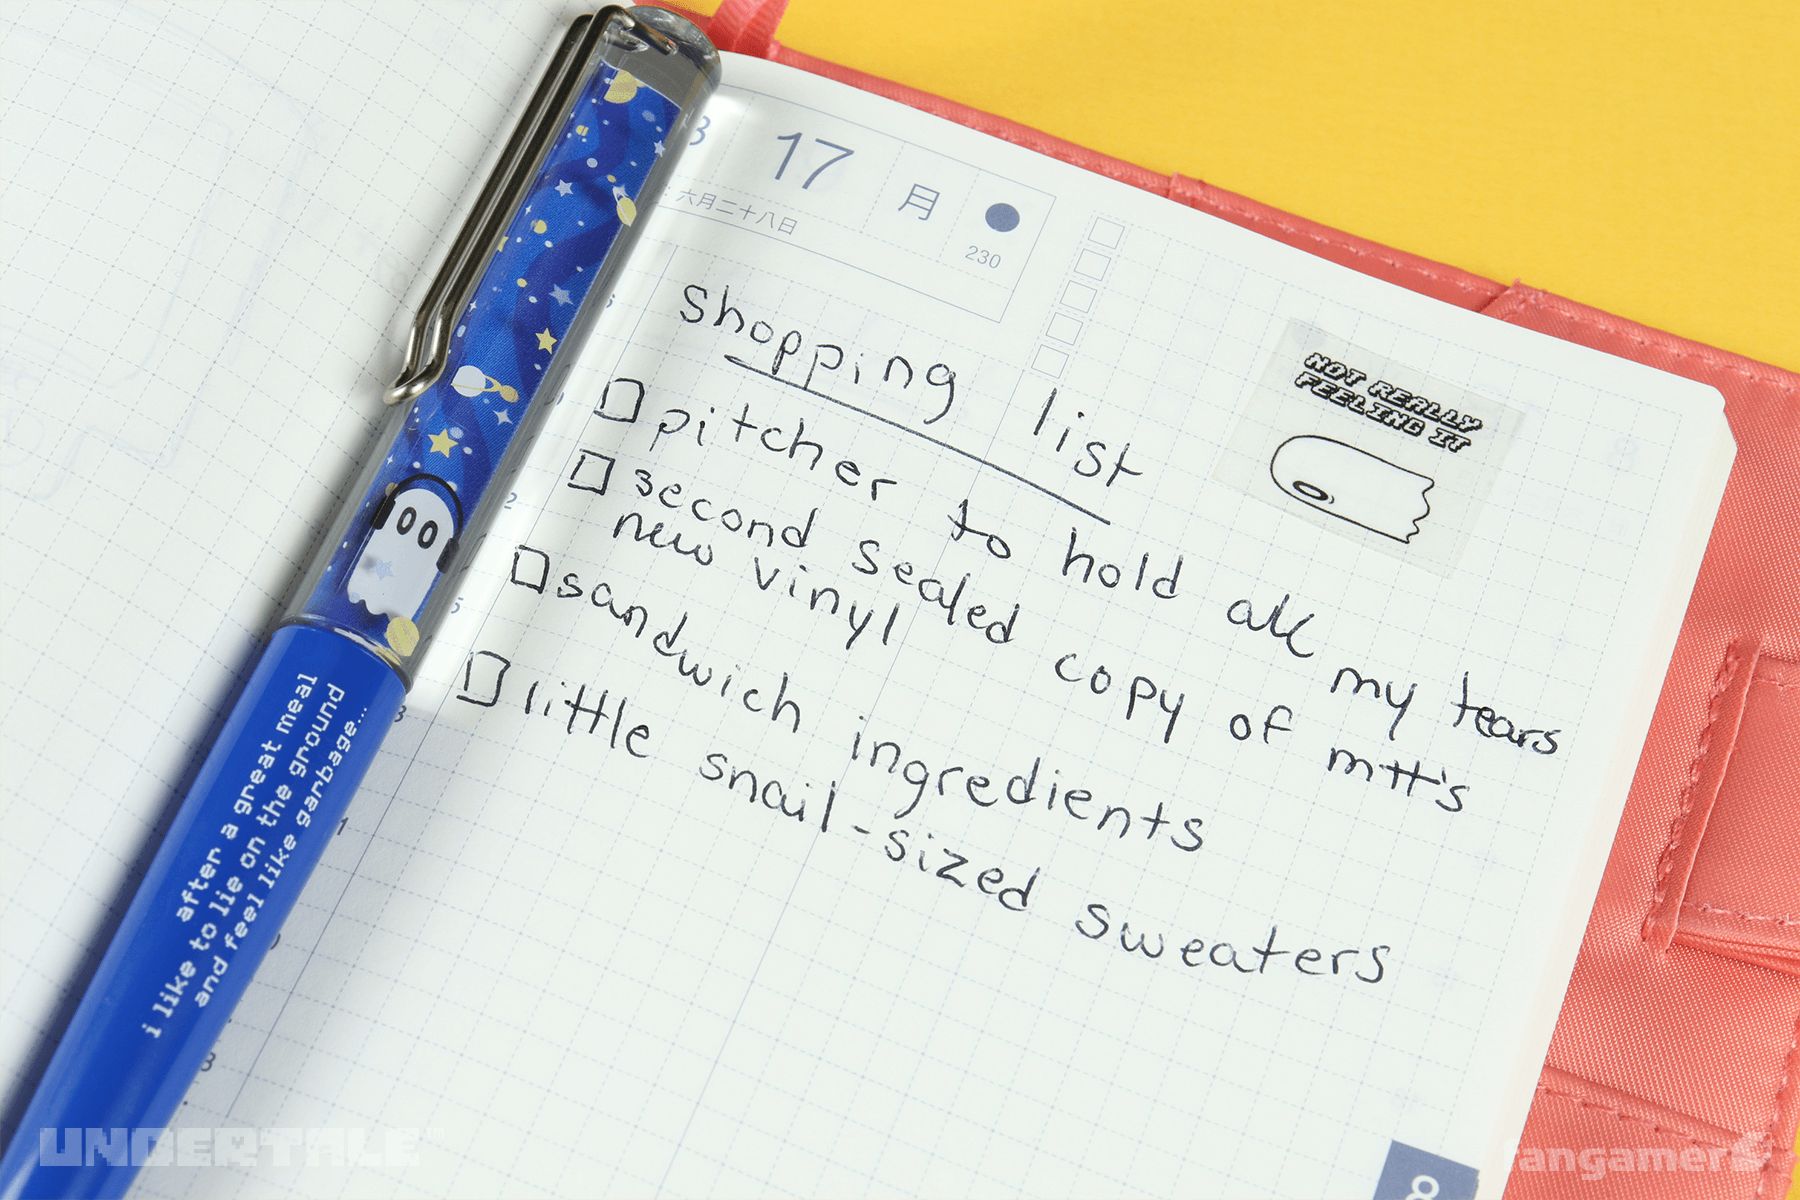 17
月
230
六月二十八日
shopping list
pitcher to hold all my tears
second sealed copy of mtt's
new vinyl
sandwich ingredients
little snail-sized sweaters
NOT REALLY
FEELING IT
after a great meal
i like to lie on the ground
and feel like garbage...
8
UNDERTALE
fangamer